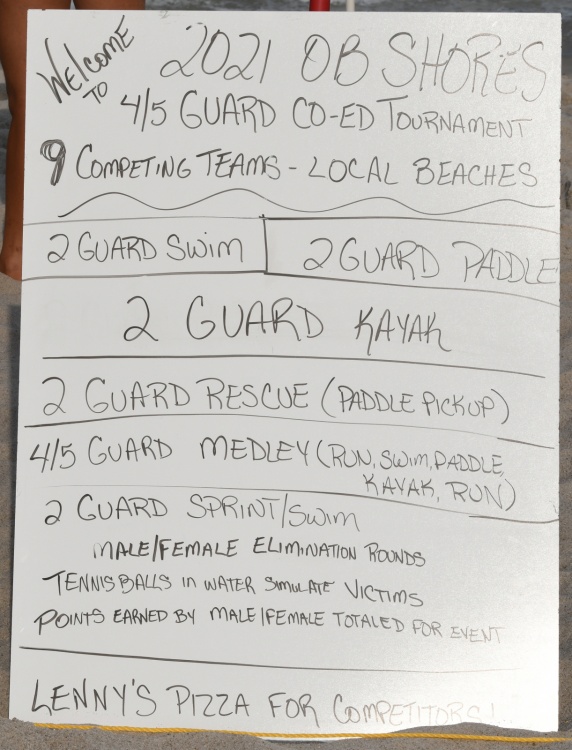 WELCOME TO
2021 OB SHORES
4/5 GUARD CO-ED TOURNAMENT
9 COMPETING TEAMS - LOCAL BEACHES
2 GUARD SWIM
2 GUARD PADDLE
2 GUARD KAYAK
2 GUARD RESCUE (PADDLE PICKUP)
4/5 GUARD MEDLEY (RUN, SWIM, PADDLE
KAYAK, RUN)
2 GUARD SPRINT/SWIM
MALE/FEMALE ELIMINATION ROUNDS
TENNIS BALLS IN WATER SIMULATE VICTIMS
POINTS EARNED BY MALE/FEMALE TOTALED FOR EVENT
LENNY'S PIZZA FOR COMPETITORS!..